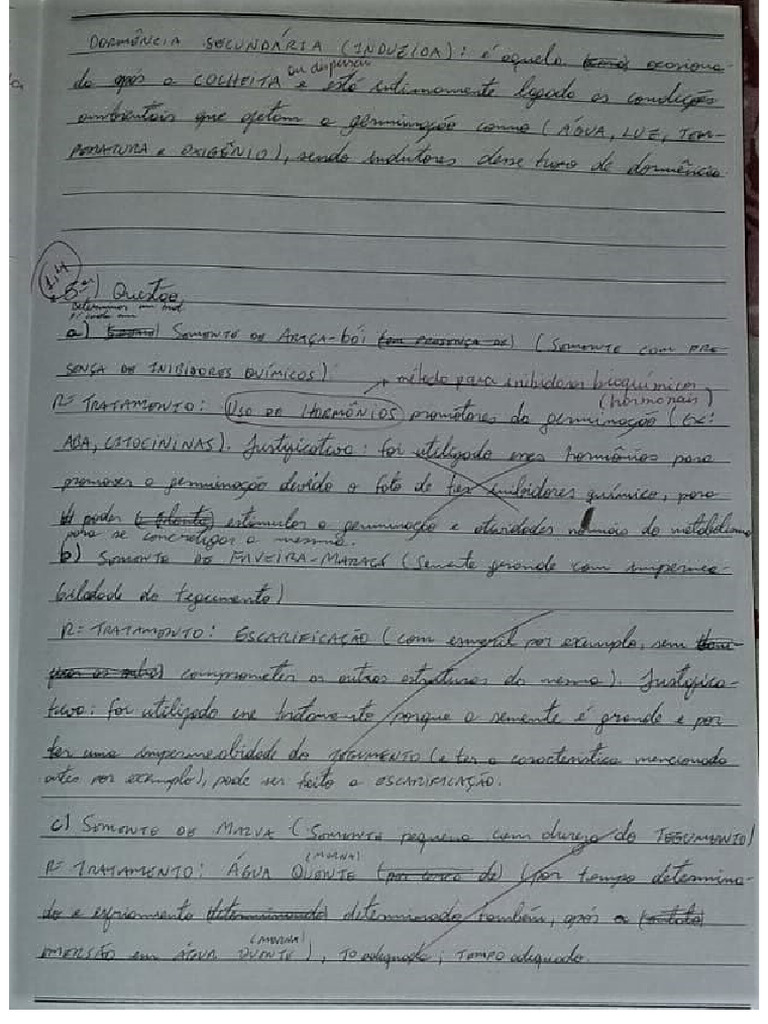 DORMÊNCIA SECUNDÁRIA (INDUZIDA): é aquela ocasiona-
ou dispersão
da após a COLHEITA e está intimamente ligado as condições
ambientais que afetam a germinação como (ÁGUA, LUZ, TEM-
PERATURA e OXIGÊNIO), sendo indutores desse tipo de dormência.
1,4
5ª) Questão
Determinar
a) SEMENTE DE ARAÇA-BOI (SEMENTE COM PRE
SENÇA DE INIBIDORES QUÍMICOS)
→ método para inibidores bioquímicos
(hormonais)
R= TRATAMENTO: USO DE HORMÔNIOS promotores da germinação (EX:
ABA, CITOCININAS). Justificativa: foi utilizado esses hormônios para
promover a germinação devido o fato de ter inibidores químico, para
poder estimular a germinação e atividades normais do metabolismo
para se concretizar a mesma.
b) SEMENTE DE FAVEIRA-MARACÁ (Semente grande com impermea-
bilidade do tegumento)
R= TRATAMENTO: ESCARIFICAÇÃO (com esmeril por exemplo, sem
comprometer as outras estruturas da mesma). Justifica-
tiva: foi utilizado esse tratamento porque a semente é grande e por
ter uma impermeabilidade do TEGUMENTO (e ter a característica mencionada
antes por exemplo), pode ser feito a ESCARIFICAÇÃO.
c) SEMENTE DE MALVA (Semente pequena com dureza do TEGUMENTO)
(MORNA)
R= TRATAMENTO: ÁGUA QUENTE (por tempo determina-
do e esfriamento determinado também, após a
(MORNA)
IMERSÃO em ÁGUA QUENTE), Tº adequada; TEMPO adequado.